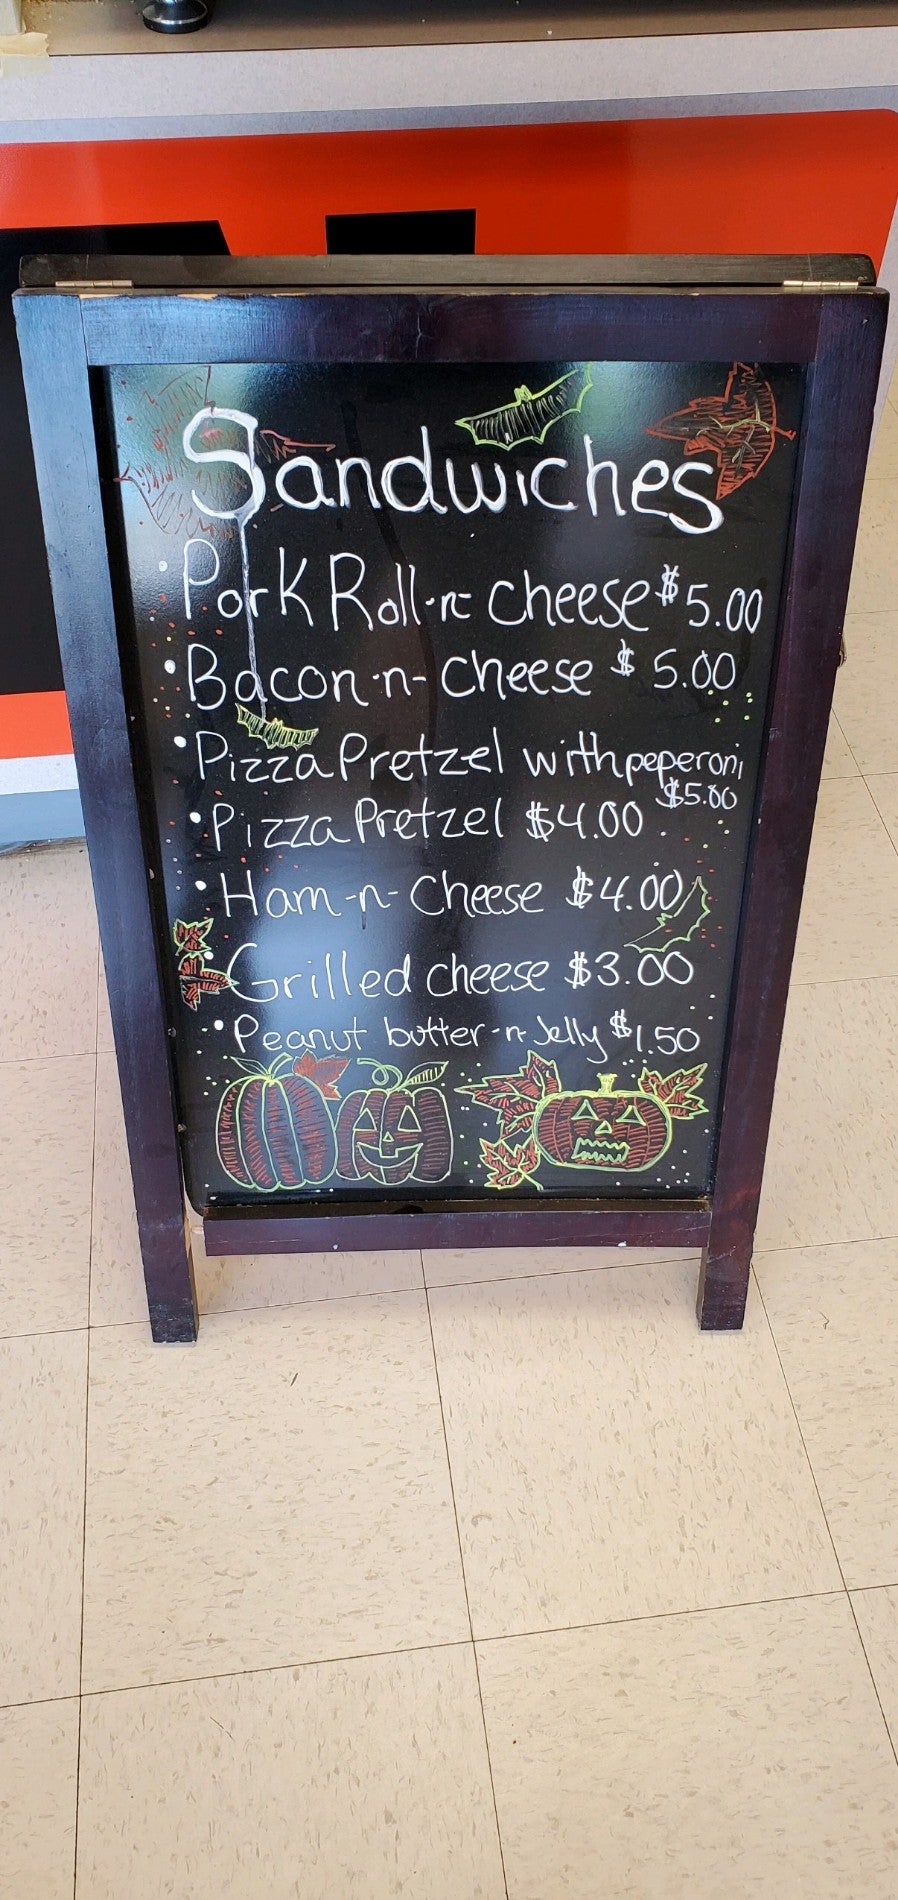 Sandwiches
• Pork Roll-n- cheese $5.00
• Bacon-n- cheese $5.00
• Pizza Pretzel with peperoni
$5.00
• Pizza Pretzel $4.00
• Ham-n- Cheese $4.00
• Grilled cheese $3.00
• Peanut butter-n-Jelly $1.50